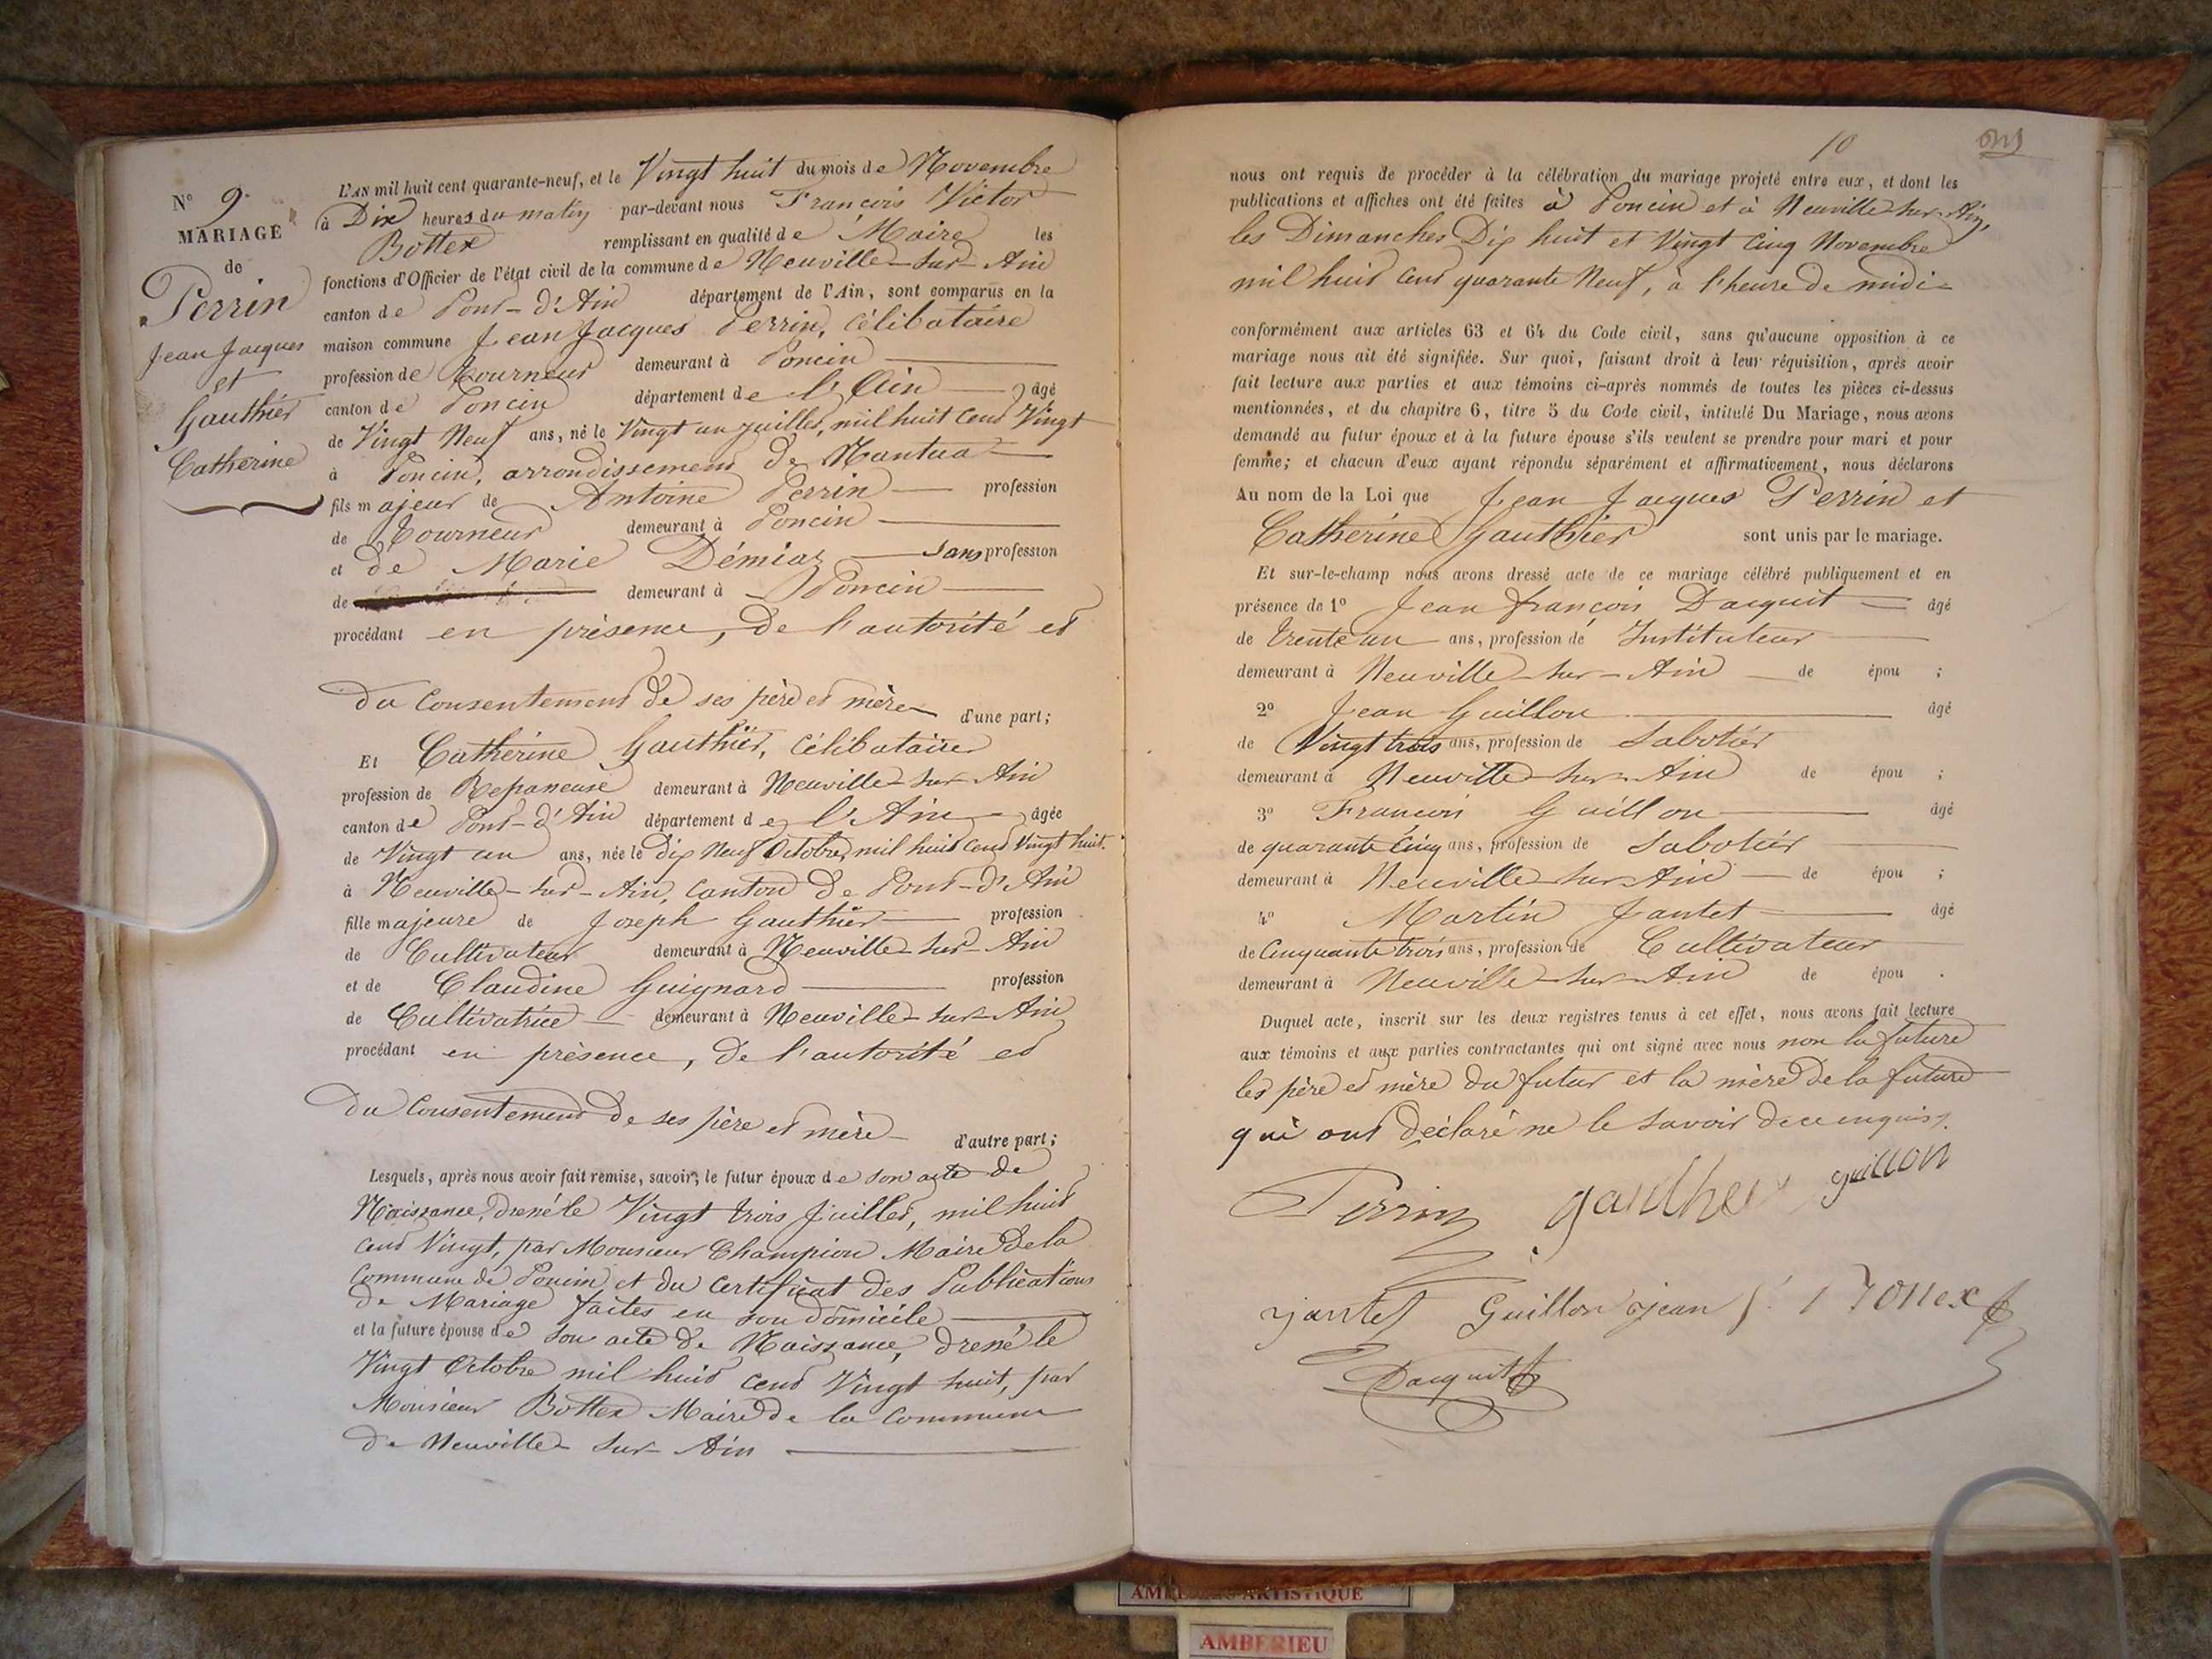 N° 9.
MARIAGE
de
Perrin
Jean Jacques
et
Gauthier
Catherine
L'AN mil huit cent quarante-neuf, et le Vingt huit du mois de Novembre
à Dix heures du matin par-devant nous François Victor
Bottex remplissant en qualité de Maire les
fonctions d'Officier de l'état civil de la commune de Neuville-sur-Ain
canton de Pont-d'Ain département de l'Ain, sont comparus en la
maison commune Jean Jacques Perrin, célibataire
profession de Tourneur demeurant à Poncin
canton de Poncin département de l'Ain, âgé
de Vingt Neuf ans, né le Vingt un juillet, mil huit cent Vingt
à Poncin, arrondissement de Nantua
fils majeur de Antoine Perrin profession
de Tourneur demeurant à Poncin
et de Marie Démiaz Sans profession
de demeurant à Poncin
procédant en présence, de l'autorité et
du Consentement de ses père et mère d'une part;
Et Catherine Gauthier, célibataire
profession de Repaneuse demeurant à Neuville-sur-Ain
canton de Pont-d'Ain département de l'Ain, âgée
de Vingt un ans, née le dix Neuf Octobre, mil huit cent Vingt huit.
à Neuville-sur-Ain, canton de Pont-d'Ain
fille majeure de Joseph Gauthier profession
de Cultivateur demeurant à Neuville-sur-Ain
et de Claudine Guignard profession
de Cultivatrice demeurant à Neuville-sur-Ain
procédant en présence, de l'autorité et
du Consentement de ses père et mère d'autre part;
Lesquels, après nous avoir fait remise, savoir; le futur époux de son acte de
Naissance, dressé le Vingt trois Juillet, mil huit
cent Vingt, par Monsieur Champion Maire de la
Commune de Poncin et du Certificat des Publications
de Mariage faites en son domicile
et la future épouse de son acte de Naissance, dressé le
Vingt Octobre mil huit cent Vingt huit, par
Monsieur Bottex Maire de la Commune
de Neuville-sur-Ain
10
nous ont requis de procéder à la célébration du mariage projeté entre eux, et dont les
publications et affiches ont été faites à Poncin et à Neuville-sur-Ain,
les Dimanches Dix huit et Vingt Cinq Novembre
mil huit cent quarante Neuf, à l'heure de midi
conformément aux articles 63 et 64 du Code civil, sans qu'aucune opposition à ce
mariage nous ait été signifiée. Sur quoi, faisant droit à leur réquisition, après avoir
fait lecture aux parties et aux témoins ci-après nommés de toutes les pièces ci-dessus
mentionnées, et du chapitre 6, titre 5 du Code civil, intitulé Du Mariage, nous avons
demandé au futur époux et à la future épouse s'ils veulent se prendre pour mari et pour
femme; et chacun d'eux ayant répondu séparément et affirmativement, nous déclarons
Au nom de la Loi que Jean Jacques Perrin et
Catherine Gauthier sont unis par le mariage.
Et sur-le-champ nous avons dressé acte de ce mariage célébré publiquement et en
présence de 1° Jean françois Dacquit âgé
de trente un ans, profession de Instituteur
demeurant à Neuville-sur-Ain de épou ;
2° Jean Guillon âgé
de Vingt trois ans, profession de Sabotier
demeurant à Neuville-sur-Ain de épou ;
3° François Guillon âgé
de quarante Cinq ans, profession de Sabotier
demeurant à Neuville sur Ain de épou ;
4° Martin Jantet âgé
de Cinquante trois ans, profession de Cultivateur
demeurant à Neuville-sur-Ain de épou .
Duquel acte, inscrit sur les deux registres tenus à cet effet, nous avons fait lecture
aux témoins et aux parties contractantes qui ont signé avec nous non la future
les père et mère du futur et la mère de la future
qui ont déclaré ne le savoir de ce enquis.
Perrin gauthier guillon
jantet Guillon jean Bottex
Dacquit
AMBERIEU